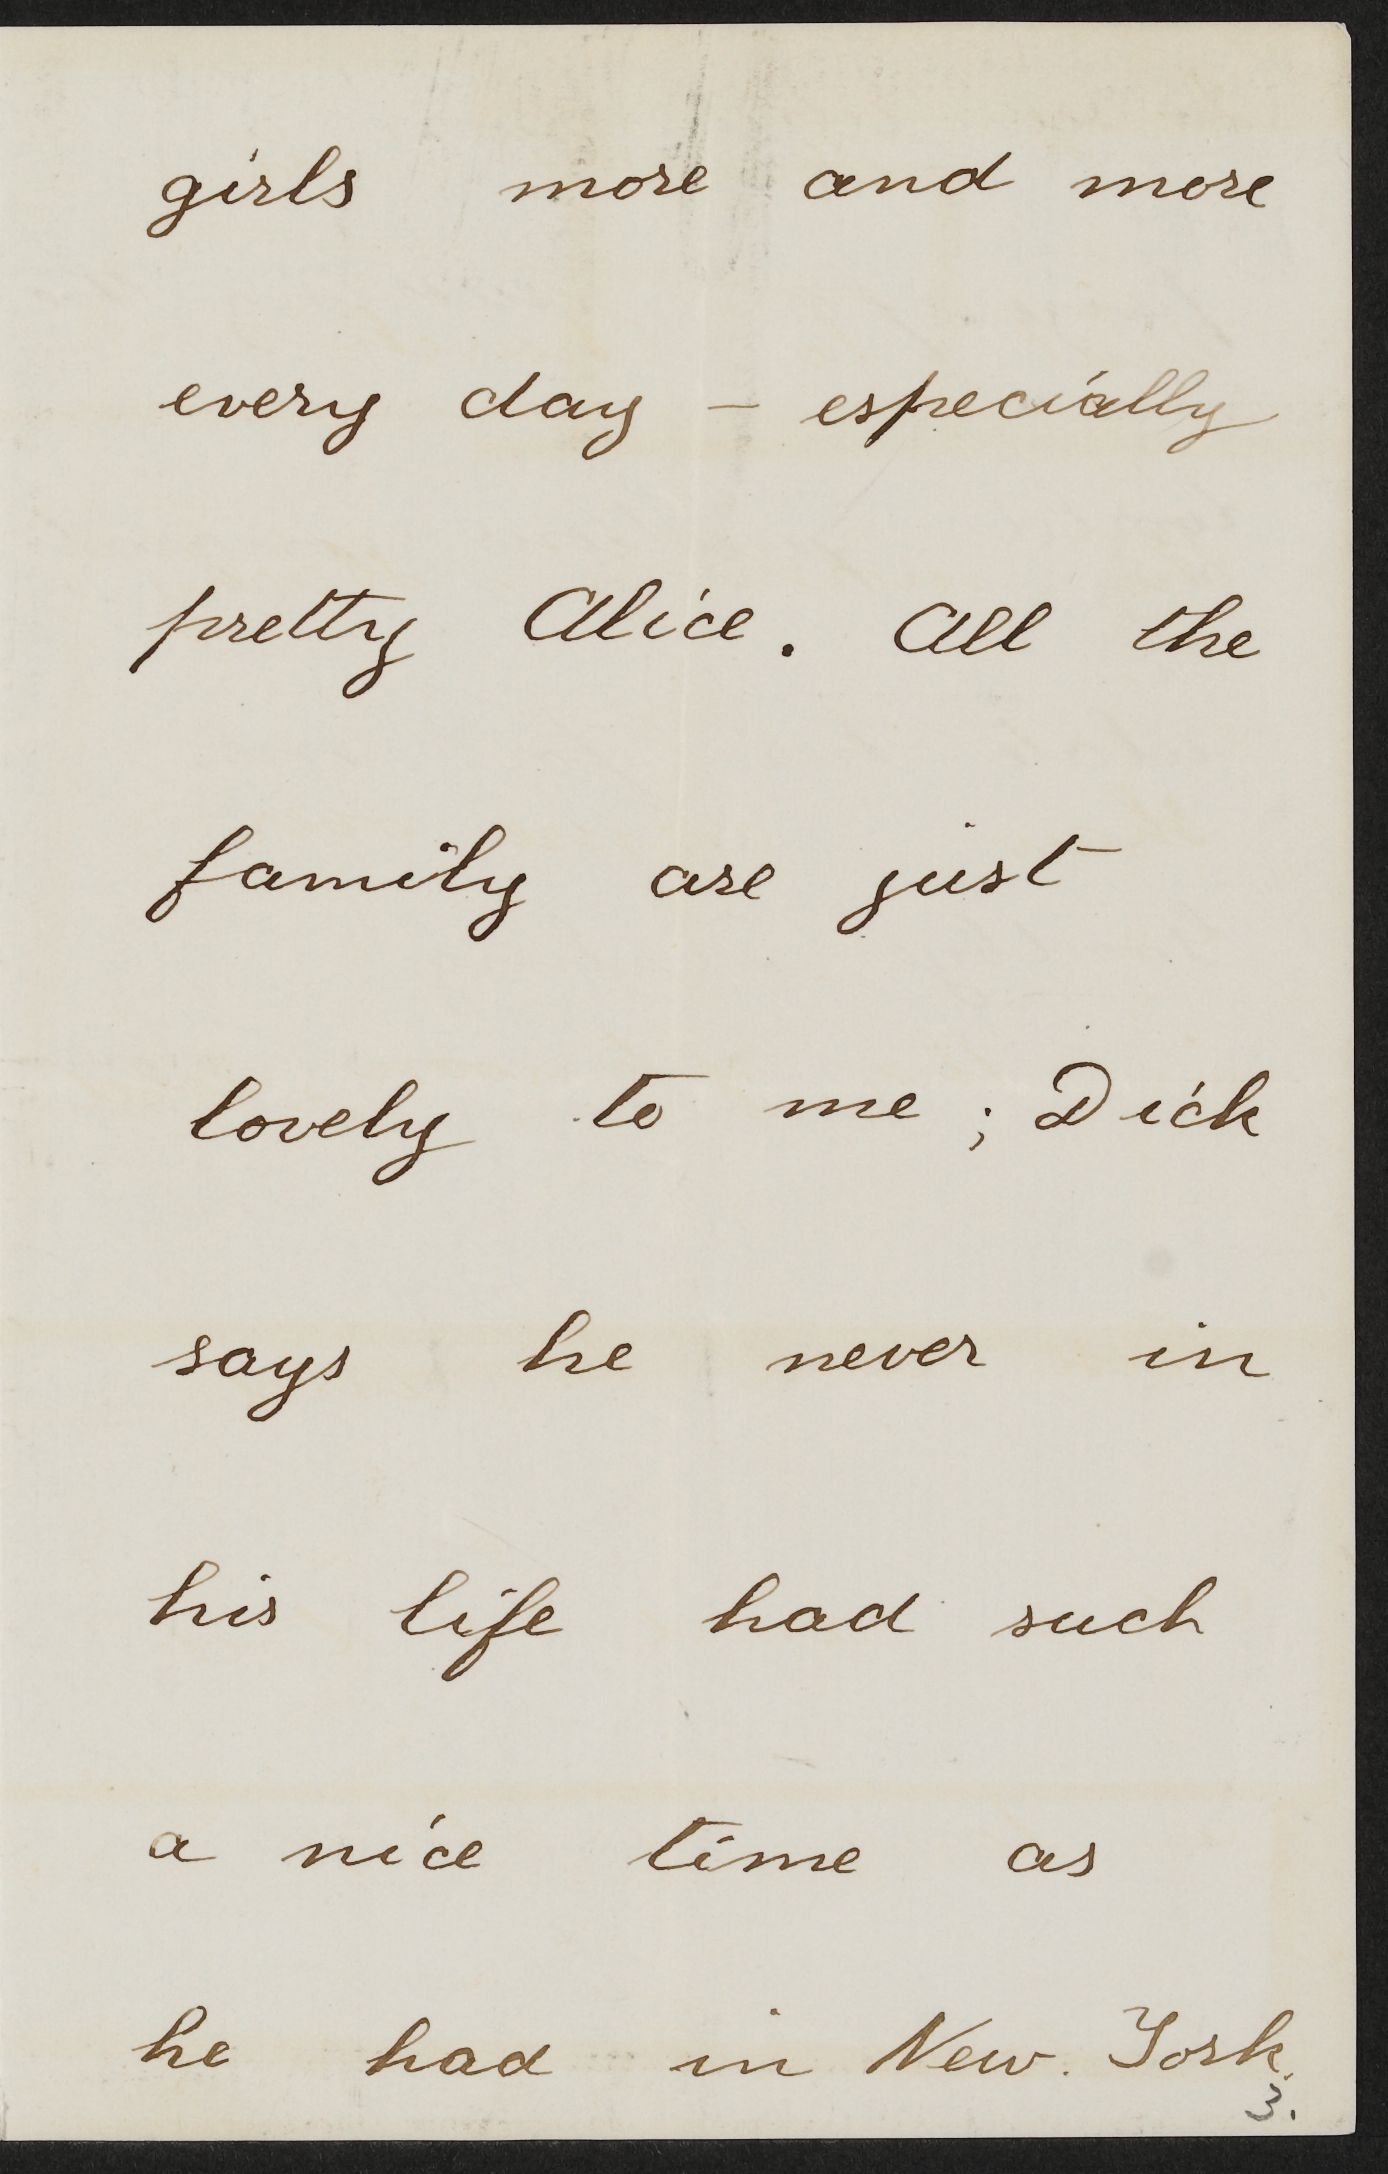 girls more and more
every day – especially
pretty Alice. All the
family are just
lovely to me; Dick
says he never in
his life had such
a nice time as
he had in New York.
3.